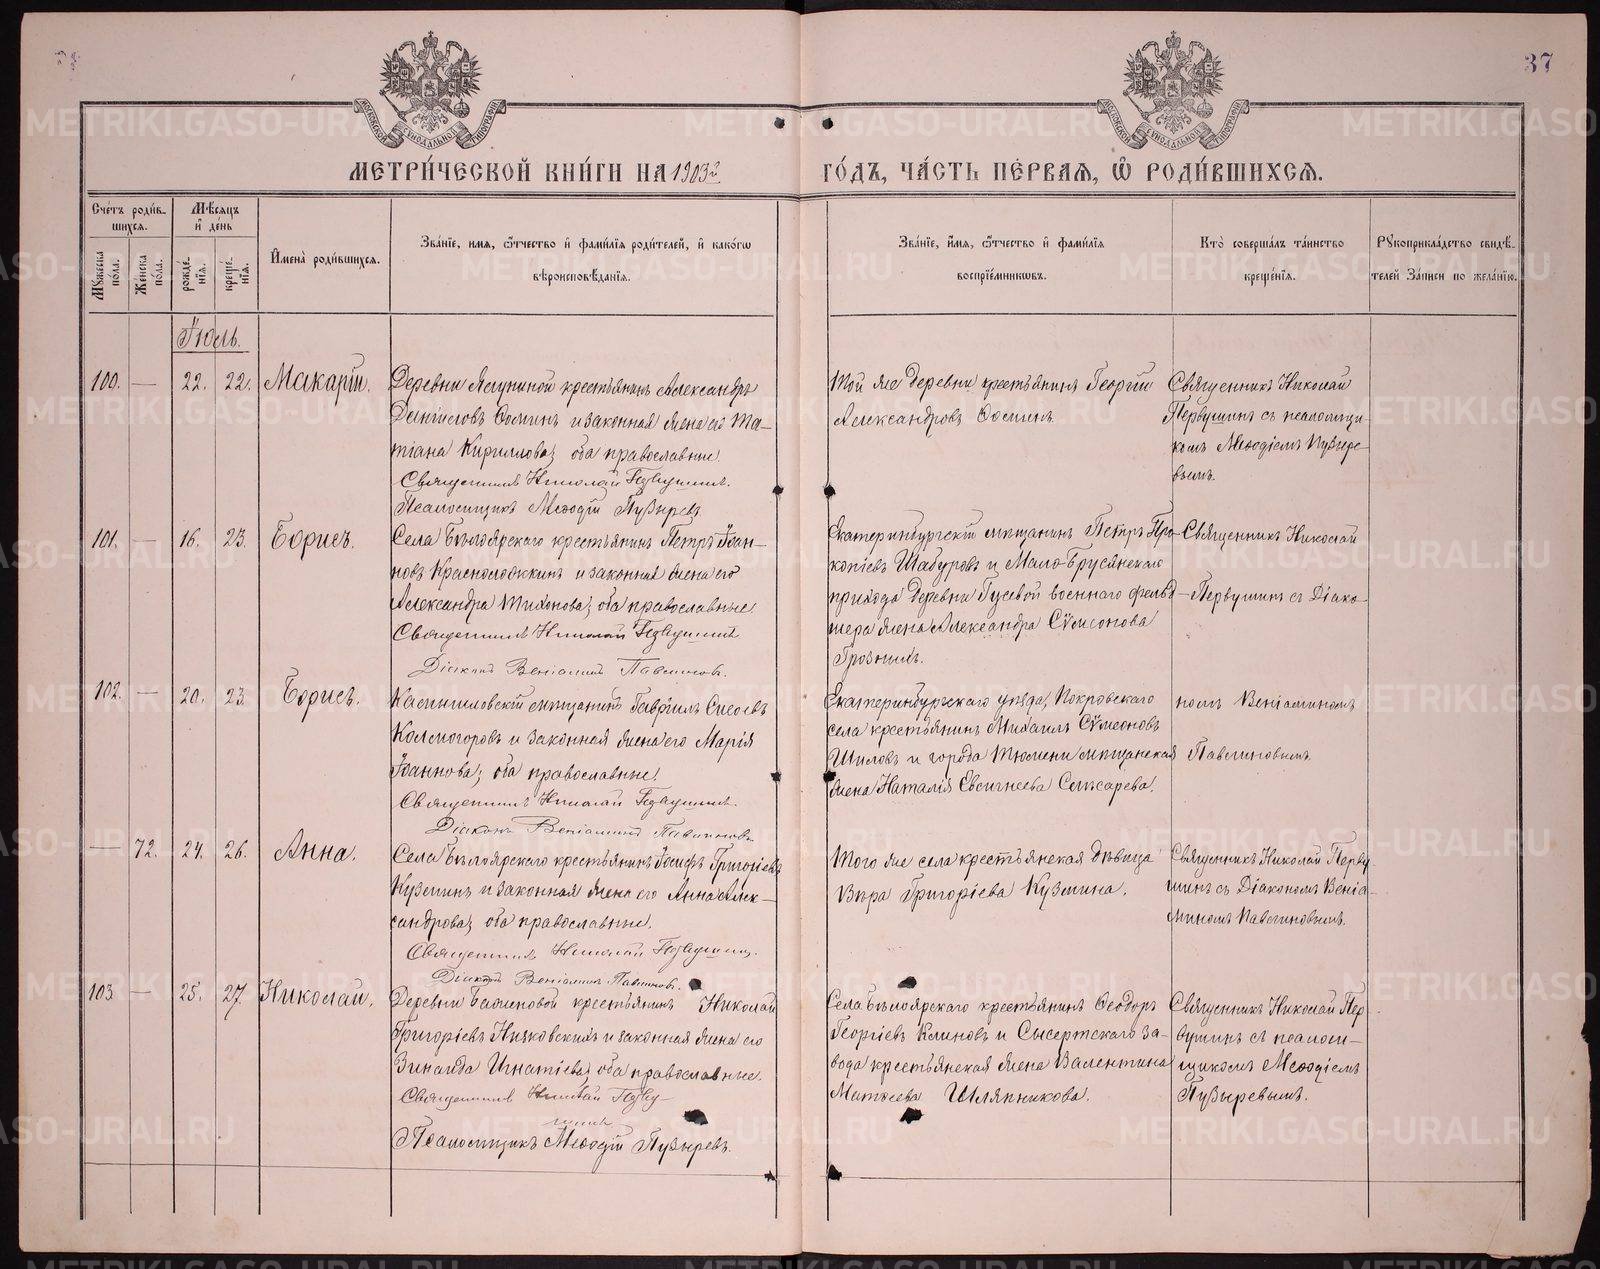 37
МЕТРИ́ЧЕСКОЙ КНИ́ГИ НА 1903й
ГО́ДЪ, ЧА́СТЬ ПЕ́РВАѦ, Ѽ РОДИ́ВШИХСѦ.
Сче́тъ роди́в-
шихся.
Мꙋжеска
по́ла.
Же́нска
по́ла.
Мѣ́сяцъ
и҆ де́нь
рожде́-
нїя.
креще́-
нїя.
И҆мена̀ роди́вшихся.
Зва́нїе, имя, ѻ҆́тчество и҆ фами́лїя роди́телей, и҆ како́гѡ
вѣроисповѣ́данїя.
Зва́нїе, и҆́мя, ѻ҆́тчество и҆ фами́лїя
воспрїе́мникѡвъ.
Кто̀ соверша́лъ та́инство
креще́нїя.
Рꙋкоприкла́дство свидѣ́-
телей за́писи по жела́нїю.
Іюль.
100. — 22. 22. Макарій.
Деревни Ялуниной крестьянинъ Александръ
Данииловъ Ѳоминъ и законная жена его Та-
тіана Кириллова; оба православные.
Священникъ Николай Первушинъ.
Псаломщикъ Меѳодій Пузыревъ
Той же деревни крестьянинъ Георгій
Александровъ Ѳоминъ.
Священникъ Николай
Первушинъ съ псаломщи-
комъ Меѳодіемъ Пузыре-
вымъ.
101. — 16. 23. Борисъ.
Села Бѣлоярскаго крестьянинъ Петръ Іоан-
новъ и законная жена его
Александра Тихонова; оба православные.
Священникъ Николай Первушинъ
Діаконъ Веніаминъ Павлиновъ.
Екатеринбургскій мѣщанинъ Петръ Про-
копіевъ Шабуровъ и Мало-Брусянскаго
прихода деревни Гусевой военнаго фельд-
шера жена Александра Сѵмеонова
Грозныхъ.
Священникъ Николай
Первушинъ съ Діако-
102. — 20. 23. Борисъ.
Камышловскій мѣщанинъ Гавріилъ Сисоевъ
Колмогоровъ и законная жена его Марія
Іоаннова; оба православные.
Священникъ Николай Первушинъ.
Діаконъ Веніаминъ Павлиновъ
Екатеринбургскаго уѣзда, Покровскаго
села крестьянинъ Михаилъ Сѵмеоновъ
Шиловъ и города Тюмени мѣщанская
жена Наталія Евсигнеева Слѣсарева.
номъ Веніаминомъ
Павлиновымъ.
— 72. 24. 26. Анна.
Села Бѣлоярскаго крестьянинъ Іосифъ Григоріевъ
Кузминъ и законная жена его Анна Алек-
сандрова; оба православные.
Священникъ Николай Первушинъ.
Діаконъ Веніаминъ Павлиновъ.
Того же села крестьянская дѣвица
Вѣра Григоріева Кузмина.
Священникъ Николай Перву-
шинъ съ Діакономъ Веніа-
миномъ Павлиновымъ.
103 — 25. 27. Николай.
Деревни Баженовой крестьянинъ Николай
Григоріевъ и законная жена его
Зинаида Игнатіева; оба православные.
Священникъ Николай Перву-
шинъ
Псаломщикъ Меѳодій Пузыревъ.
Села Бѣлоярскаго крестьянинъ Ѳеодоръ
Георгіевъ Клиновъ и Сысертскаго за-
вода крестьянская жена Валентина
Матѳеева Шляпникова.
Священникъ Николай Пер-
вушинъ съ псаломщ-
щикомъ Меѳодіемъ
Пузыревымъ.
METRIKI.GASO-URAL.RU